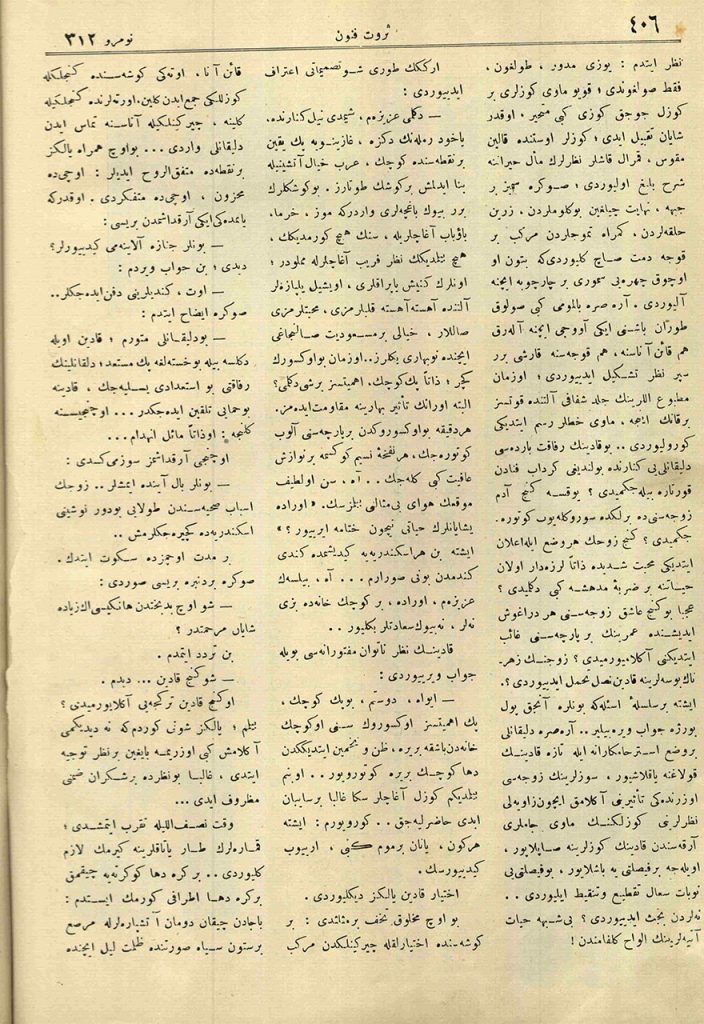 ٤٠٦
ثروت فنون
نومرو ٣١٢
نظر ایتدم : یوزی مدور ، طولغون ،
فقط صولغوندی ؛ قویو ماوی کوزلری بر
کوزل چوجق کوزی کبی متحیر ، اوقدر
شایان تقبیل ایدی ؛ کوزلر اوستنده قالین
مقوس ، قمرال قاشلر نظرلرك مال حیراننه
شرح بلیغ اولیوردی ؛ صوکره سپیز بر
جبهه ، نهایت چیلغین بوکلوملردن ، زرین
حلقه‌لردن ، کمراه تموجلردن مرکب بر
قوجه دمت صاچ کلیوردی‌که بتون او
اوچوق چهره‌یی سموری بر چارچوبه ایچنه
آلیوردی . آره صره بالمومی کبی صولوق
طوران باشنی ایکی آووجی ایچنه آله‌رق
هم قائن آناسنه ، هم قوجه‌سنه قارشی برر
سپر نظر تشکیل ایدییوردی ؛ اوزمان
مطبوع اللرینك جلد شفافی آلتنده قوتسز
برقانك انجه ، ماوی خطلر رسم ایتدیکی
کورولیوردی .. بوقادینك رفاقت بارده‌سی
دلیقانلی‌یی کنارنده بولندیغی کرداب فنادن
قورتاره بیله‌جکمیدی ؟ یوقسه کنج آدم
زوجه‌سنی‌ده برلکده سوروکله‌یوب کوتوره‌
جکمیدی ؟ کنج زوجك هر وضع ایله اعلان
ایتدیکی محبت شدیده ذاتا لرزه‌دار اولان
حیاتنه بر ضربۀ مدهشه کبی دکلمیدی ؟
عجبا بوکنج عاشق زوجه‌سنی هر دراغوش
ایدیشنده عمرینك بر پارچه‌سنی غائب
ایتدیکنی آکلامیورمیدی ؟ زوجنك زهر‌
ناك بوسه‌لرینه قادین نصل تحمل ایدییوردی ؟.
ایشته بر سلسلۀ اسئله‌که بونلره آنجق پول
بورژه جواب ویره‌بیلیر .. آره‌صره دلیقانلی
بر وضع استرحامکارانه ایله تازه قادینك
قولاغنه یاقلاشیور ، سوزلرینك زوجه‌سی
اوزرنده‌کی تأثیرنی آکلامق ایچون زاویه‌لی
نظرلرنی کوزلکنك ماوی جاملری
آرقه‌سندن قادینك کوزلرینه صاپلایور ،
اویله‌جه بر فیصلتی یه باشلایور ، بوفیصلتی‌یی
نوبات سعال تقطیع و تنقیط ایلیوردی . .
نه‌لردن بحث ایدییوردی ؟ بی‌شبهه حیات
آتیه‌لرینك الواح کلفامندن !
ارککك طوری شو تصمیماتی اعتراف
ایدییوردی :
— دکلمی عزیزه‌م ، شیمدی نیل کنارنده ،
یاخود رمله‌نك دکزه ، غازینویه پك یقین
بر نقطه‌سنده کوچك ، عرب خیال آتشینیله
بنا ایدلمش بر کوشك طوتارز . بوکوشکلرك
برر بیوك باغچه‌لری واردرکه موز ، خرما ،
باؤباب آغاچلریله ، سنك هیچ کورمدیکك ،
هیچ بیلمدیکك نظر فریب آغاچلرله مملودر ؛
اونلرك کنیش یاپراقلری ، اویشیل یلپازه‌لر
آلتنده آهسته آهسته قلبلرمزی ، محبتلرمزی
صاللار ، خیالی بر مسعودیت صالنجاغی
ایچنده نوبهاری بکلرز .. اوزمان بو اوکسورك
کچر ؛ ذاتاً پك کوچك ، اهمیتسز برشی دکلمی ؟
البته اورانك تأثیر بهارینه مقاومت ایده‌مز .
هر دقیقه بو اوکسوروکدن بر پارچه‌سنی آلوب
کوتوره‌جك ، هر نفخۀ نسیم کوکسمه بر نوازش
عافیت کبی کله‌جك . . . آه ، سن او لطیف
موقعك هوای بی‌مثالنی بیلسه‌ك . « اوراده
یشایانلرك حیاتی نیچون ختامه ایریور ؟ »
ایشته بن هر اسکندریه‌یه کیدیشمده کندی
کندمدن بونی صورارم . . . آه ، بیلسه‌ك
عزیزه‌م ، اوراده ، بر کوچك خانه‌ده بزی
نه‌لر ، نه بیوك سعادتلر بکلیور ..
قادینك نظر ناتوان مفتورانه‌سی بویله
جواب ویرییوردی :
— ایواه ، دوستم ، بویك کوچك ،
پك اهمیتسز اوکسوروك سنی او کوچك
خانه‌دن باشقه بریره ، ظن و تخمین ایتدیککدن
دها کوچك بریره کوتورویور . . اوبنم
بیلمدیکم کوزل آغاچلر سکا غالبا بر سایبان
ابدی حاضرلیه‌جق .. کورویورم : ایشته
هرکون ، یانان برموم کبی ، اریبوب
کیدییورسك .
اختیار قادین یالکز دیکلیوردی .
بو اوچ مخلوق تحف بر مثلثدی : بر
کوشه‌سنده اختیارلقله چیرکینلکدن مرکب
قائن آنا ، اوته‌کی کوشه‌سنده کنجلکله
کوزللکی جمع ایدن کلین ، اورته‌لرنده کنجلکیله
کلینه ، چیرکینلکیله آناسنه تماس ایدن
دلیقانلی واردی . . . بو اوچ همراه یالکز
بر نقطه‌ده متفق‌الروح ایدیلر : اوچی‌ده
محزون ، اوچی‌ده متفکردی . اوقدرکه
یانمده‌کی ایکی آرقداشمدن بریسی :
— بونلر جنازه آلاینه‌می کیدییورلر ؟
دیدی ؛ بن جواب ویردم :
— اوت ، کندیلرینی دفن ایده‌جکلر..
صوکره ایضاح ایتدم :
— بودلیقانلی متورم ؛ قادین اویله
دکلسه بیله بو خسته‌لغه پك مستعد ؛ دلقانلینك
رفاقتی بو استعدادی بسلیه‌جك ، قادینه
بوحمایی تلقین ایده‌جکدر . . . اوچنجیسنه
کلنجه : اوذاتاً مائل انهدام . . .
اوچنجی آرقداشمز سوزمی کسدی :
— بونلر بال آینده ایمشلر .. زوجك
اسباب صحیه‌سندن طولایی بودور نوشینی
اسکندریه‌ده کچیره‌جکلرمش ..
بر مدت اوچمزده سکوت ایتدك .
صوکره بردنبره بریسی صوردی :
— شو اوچ بدبختدن هانکیسی اك زیاده
شایان مرحمتدر ؟
بن تردد ایتمدم .
— شو کنج قادین ... دیدم .
اوکنج قادین ترکجه‌یی آکلایورمیدی ؟
بیلمم ؛ یالکز شونی کوردم‌که نه دیدیکمی
آکلامش کبی اوزریمه بایغین بر نظر توجیه
ایتدی ، غالبا بونظرده بر شکران ضمنی
مظروف ایدی ...
وقت نصف‌اللیله تقرب ایتمشدی ؛
قماره‌لرك طار یاتاقلرینه کیرمك لازم
کلیوردی .. بر کره دها کوکرته‌یه چیقمق
بر کره دها اطرافی کورمك ایستدم :
باجادن چیقان دومان آتشپاره‌لرله مرصع
بر ستون سیاه صورتنده ظلمت لیل ایچنده